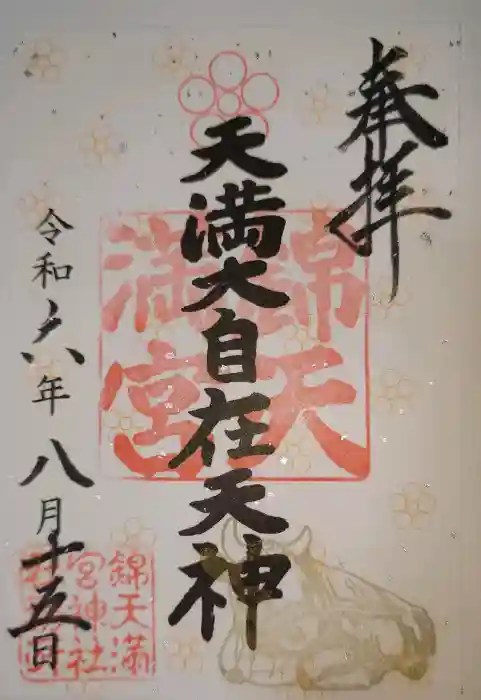 奉拝
天満大自在天神
錦天
満宮
令和六年八月十五日
錦天満
宮神社